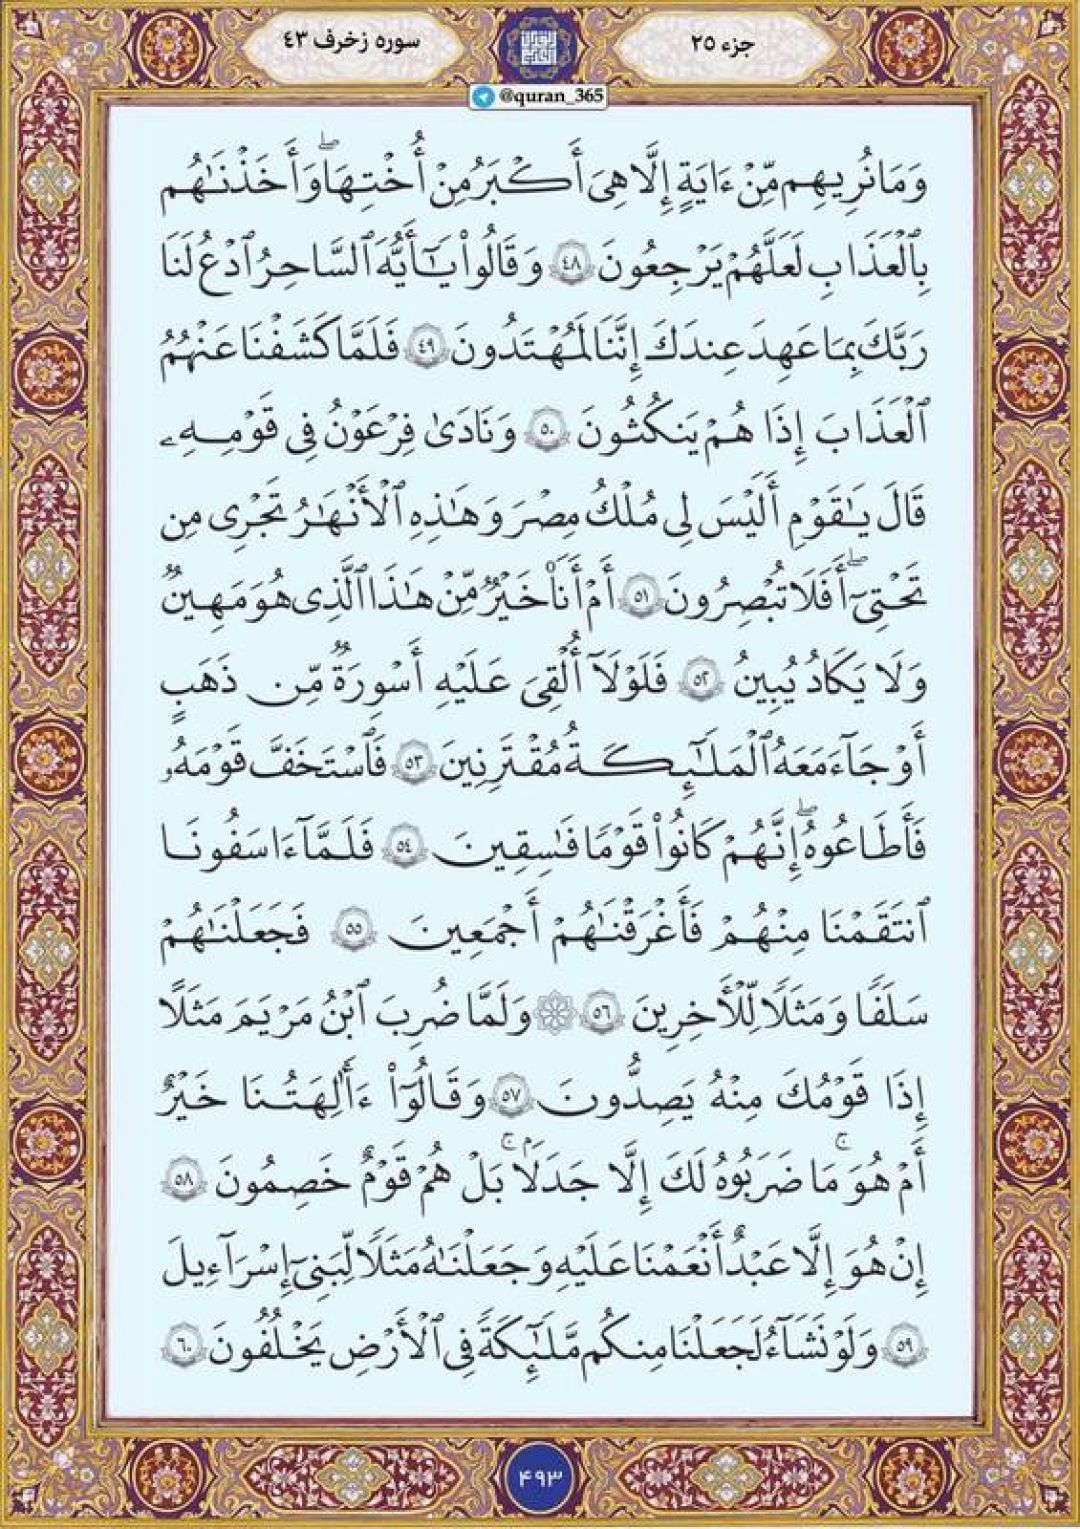 جزء ۲۵
سوره زخرف ۴۳
@quran_365
وَمَا نُرِيهِم مِّنْ ءَايَةٍ إِلَّا هِىَ أَكْبَرُ مِنْ أُخْتِهَا ۖ وَأَخَذْنَـٰهُم
بِٱلْعَذَابِ لَعَلَّهُمْ يَرْجِعُونَ ٤٨ وَقَالُوا۟ يَـٰٓأَيُّهَ ٱلسَّاحِرُ ٱدْعُ لَنَا
رَبَّكَ بِمَا عَهِدَ عِندَكَ إِنَّنَا لَمُهْتَدُونَ ٤٩ فَلَمَّا كَشَفْنَا عَنْهُمُ
ٱلْعَذَابَ إِذَا هُمْ يَنكُثُونَ ٥٠ وَنَادَىٰ فِرْعَوْنُ فِى قَوْمِهِۦ
قَالَ يَـٰقَوْمِ أَلَيْسَ لِى مُلْكُ مِصْرَ وَهَـٰذِهِ ٱلْأَنْهَـٰرُ تَجْرِى مِن
تَحْتِىٓ ۖ أَفَلَا تُبْصِرُونَ ٥١ أَمْ أَنَا۠ خَيْرٌ مِّنْ هَـٰذَا ٱلَّذِى هُوَ مَهِينٌ
وَلَا يَكَادُ يُبِينُ ٥٢ فَلَوْلَآ أُلْقِىَ عَلَيْهِ أَسْوِرَةٌ مِّن ذَهَبٍ
أَوْ جَآءَ مَعَهُ ٱلْمَلَـٰٓئِكَةُ مُقْتَرِنِينَ ٥٣ فَٱسْتَخَفَّ قَوْمَهُۥ
فَأَطَاعُوهُ ۚ إِنَّهُمْ كَانُوا۟ قَوْمًا فَـٰسِقِينَ ٥٤ فَلَمَّآ ءَاسَفُونَا
ٱنتَقَمْنَا مِنْهُمْ فَأَغْرَقْنَـٰهُمْ أَجْمَعِينَ ٥٥ فَجَعَلْنَـٰهُمْ
سَلَفًا وَمَثَلًا لِّلْـَٔاخِرِينَ ٥٦ وَلَمَّا ضُرِبَ ٱبْنُ مَرْيَمَ مَثَلًا
إِذَا قَوْمُكَ مِنْهُ يَصِدُّونَ ٥٧ وَقَالُوٓا۟ ءَأَـٰلِهَتُنَا خَيْرٌ
أَمْ هُوَ ۚ مَا ضَرَبُوهُ لَكَ إِلَّا جَدَلًۢا ۚ بَلْ هُمْ قَوْمٌ خَصِمُونَ ٥٨
إِنْ هُوَ إِلَّا عَبْدٌ أَنْعَمْنَا عَلَيْهِ وَجَعَلْنَـٰهُ مَثَلًا لِّبَنِىٓ إِسْرَٰٓءِيلَ
٥٩ وَلَوْ نَشَآءُ لَجَعَلْنَا مِنكُم مَّلَـٰٓئِكَةً فِى ٱلْأَرْضِ يَخْلُفُونَ ٦٠
۴۹۳